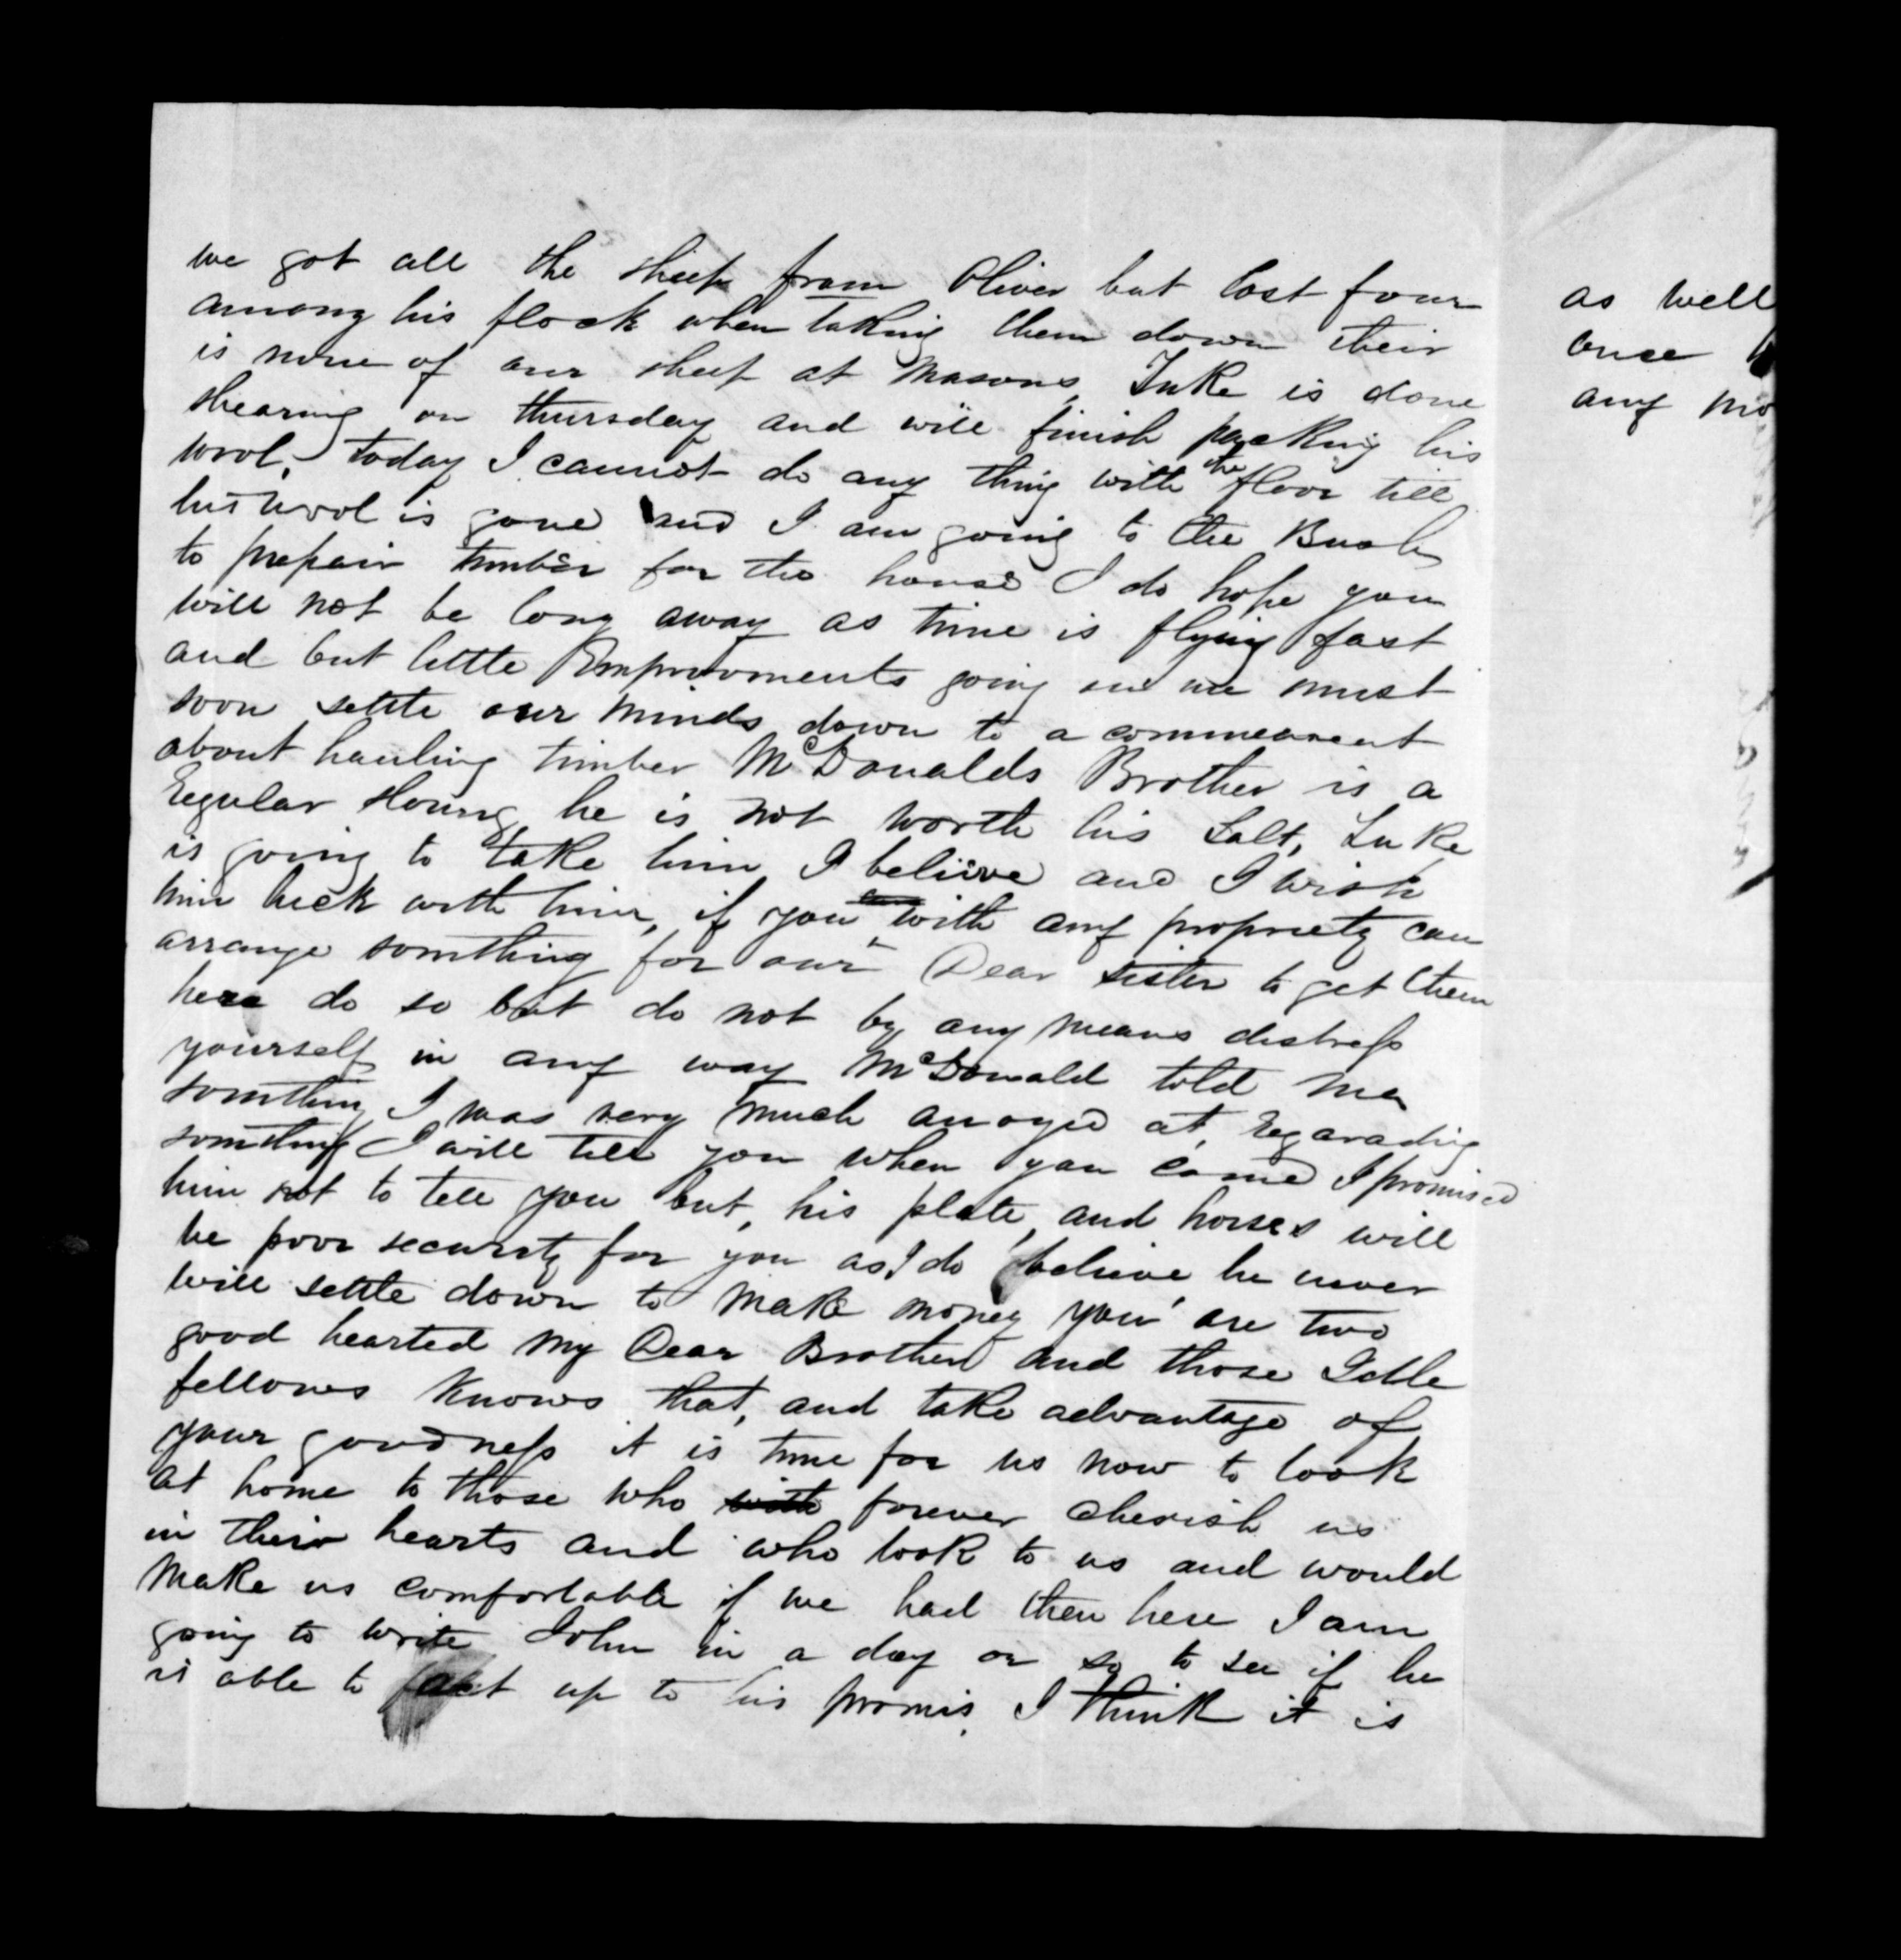 we got all the sheep from Oliver but lost four
among his flock when taking them down their
is none of our sheep at Masons, Luke is done
shearing on thursday and will finish packing his
wool, today I cannot do any thing with the floor till
his wool is gone and I am going to the Bush
to prepair timber for the house I do hope you
will not be long away as time is flying fast
and but little Improvments going on we must
soon settle our minds down to a
about hauling timber McDonalds Brother is a
Regular he is not worth his Salt, Luke
is going to take him I believe and I wish
him luck with him, if you with any propriety can
arrange somthing for our Dear sister to get them
here do so but do not by any means distress
yourself in any way McDonald told me
somthing I was very much anoyed at, Regarading
somthing I will tell you when you come I promised
him not to tell you but, his plate, and horses will
be poor security for you as I do believe he never
will settle down to make money you are two
good hearted my Dear Brother and those Idle
fellows knows that, and take advantage of
your goodness it is time for us now to look
at home to those who forever cherish us
in their hearts and who look to us and would
make us comfortable if we had them here I am
going to write John in a day or so to see if he
is able to act up to his promis, I think it is
as well
once
any mo